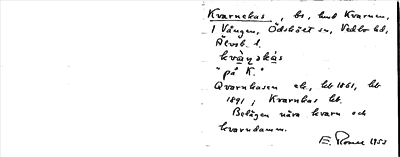 Kvarnekas, bs, hmd Kvarnen,
1 Vången, Ödskölt sn, Vedbo hd,
Älvsb. l.
kvàṇəkás
"på K."
Qvarnkasen ek. kb 1861, kb
1891; Kvarnkas kb.
Belägen nära kvarn och
kvarndamm.
E. 1953